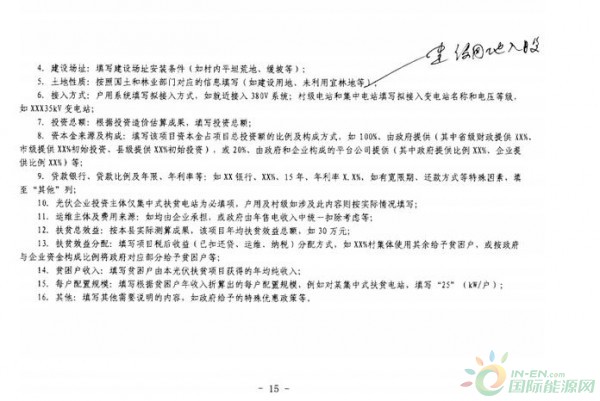 4. 建设场址：填写建设场址安装条件（如村内平坦荒地、缓坡等）；
5. 土地性质：按照国土和林业部门对应的信息填写（如建设用地、未利用宜林地等）
6. 接入方式：户用系统填写拟接入方式，如就近接入380V系统；村级电站和集中电站填写拟接入变电站名称和电压等级，
如XXX35kV变电站；
7. 投资总额：根据投资造价估算成果，填写投资总额；
8. 资本金来源及构成：填写该项目资本金占项目总投资额的比例及构成方式，如100%，由政府提供（其中省级财政提供XX%，
市级提供XX%初始投资、县级提供XX%初始投资），或20%，由政府和企业构成的平台公司提供（其中政府提供比例XX%、企业提
供比例XX%）等；
9. 贷款银行、贷款比例及年限、年利率等：如XX银行、XX%、15年、年利率X.X%、如有宽限期、还款方式等特殊因素，填
至“其他”列；
10. 光伏企业投资主体仅集中式扶贫电站为必填项，户用及村级如涉及此内容则按实际情况填写；
11. 运维主体及费用来源：如均由企业承担，或政府由年售电收入中统一扣除考虑等；
12. 扶贫总效益：按本县实际测算成果，该项目年均扶贫效益总额，如30万元；
13. 扶贫效益分配：填写项目税后收益（已扣还贷、运维、纳税）分配方式，如XX%村集体使用其余给予贫困户，或按政府
与企业资金构成比例将政府对应部分给予贫困户等；
14. 贫困户收入：填写贫困户由本光伏扶贫项目获得的年均纯收入；
15. 每户配置规模：填写根据贫困户年收入折算出的每户配置规模，例如对某集中式扶贫电站，填写“25”（kW/户）；
16. 其他：填写其他需要说明的内容，如政府给予的特殊优惠政策等。
- 15 -
IN-EN.com
国际能源网